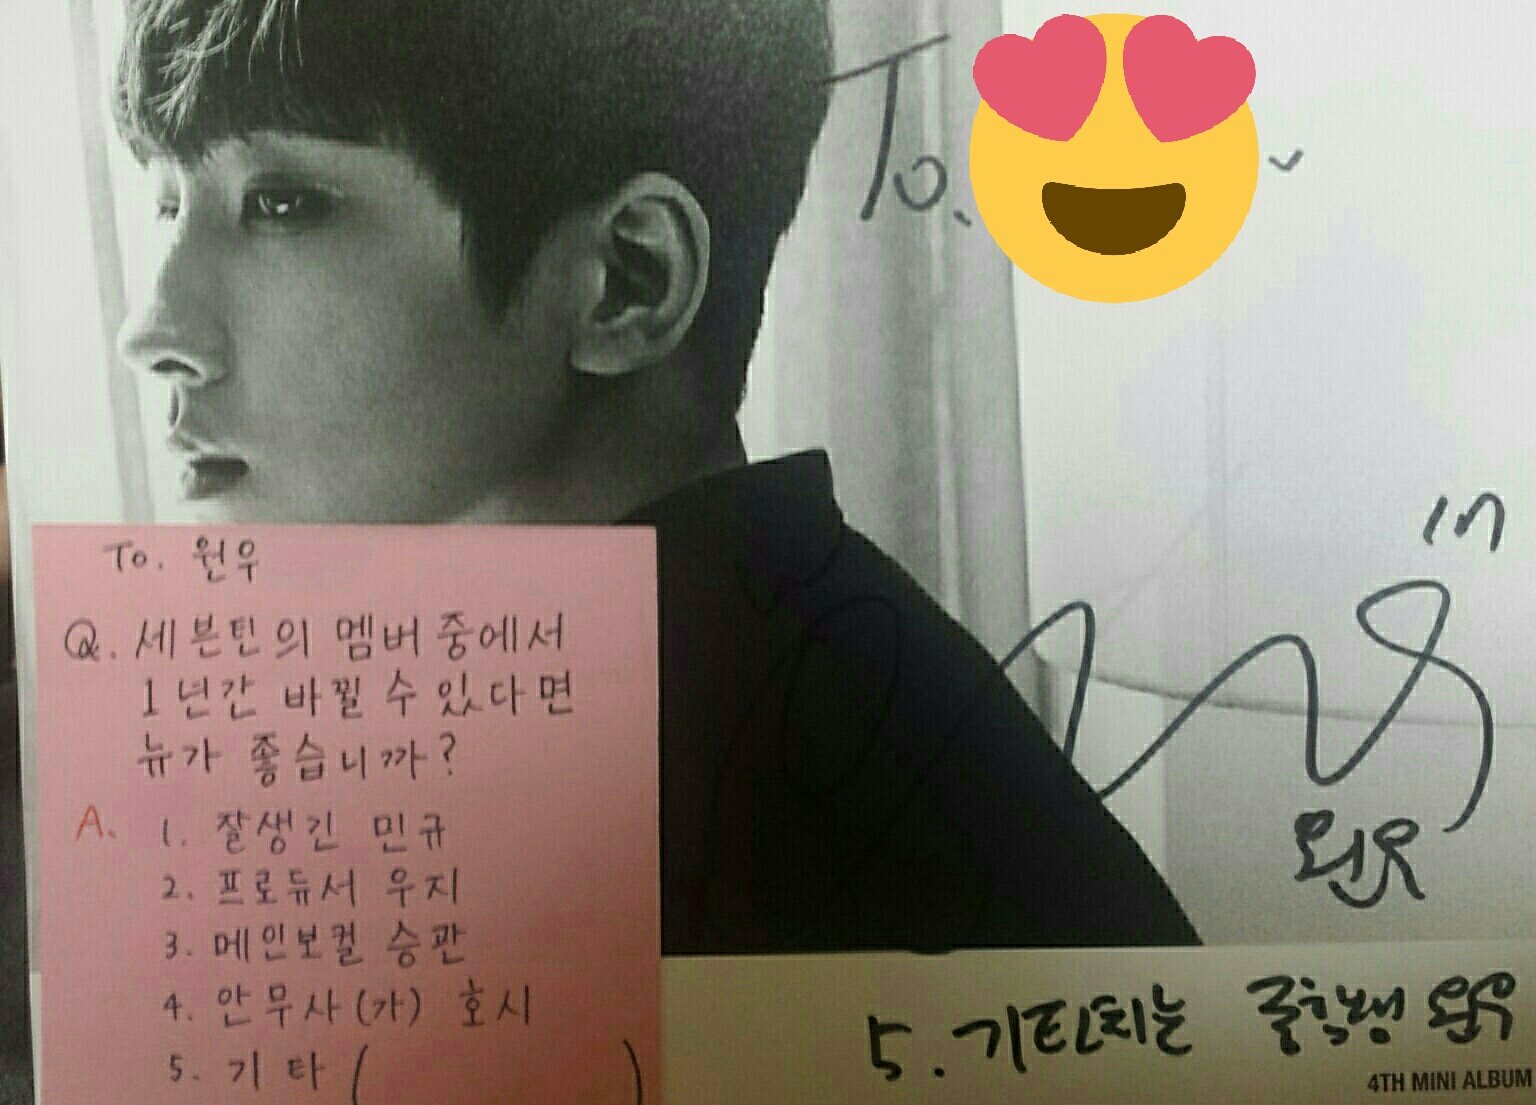 To.
in
원우
To. 원우
Q. 세븐틴의 멤버 중에서
1년간 바뀔 수 있다면
뉴가 좋습니까?
A. 1. 잘생긴 민규
2. 프로듀서 우지
3. 메인보컬 승관
4. 안무사(가) 호시
5. 기타 (            )
5. 기타치는 중학생 원우
4TH MINI ALBUM